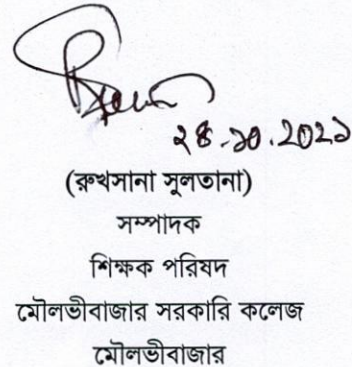 ২৪.১০.২০২১
(রুখসানা সুলতানা)
সম্পাদক
শিক্ষক পরিষদ
মৌলভীবাজার সরকারি কলেজ
মৌলভীবাজার